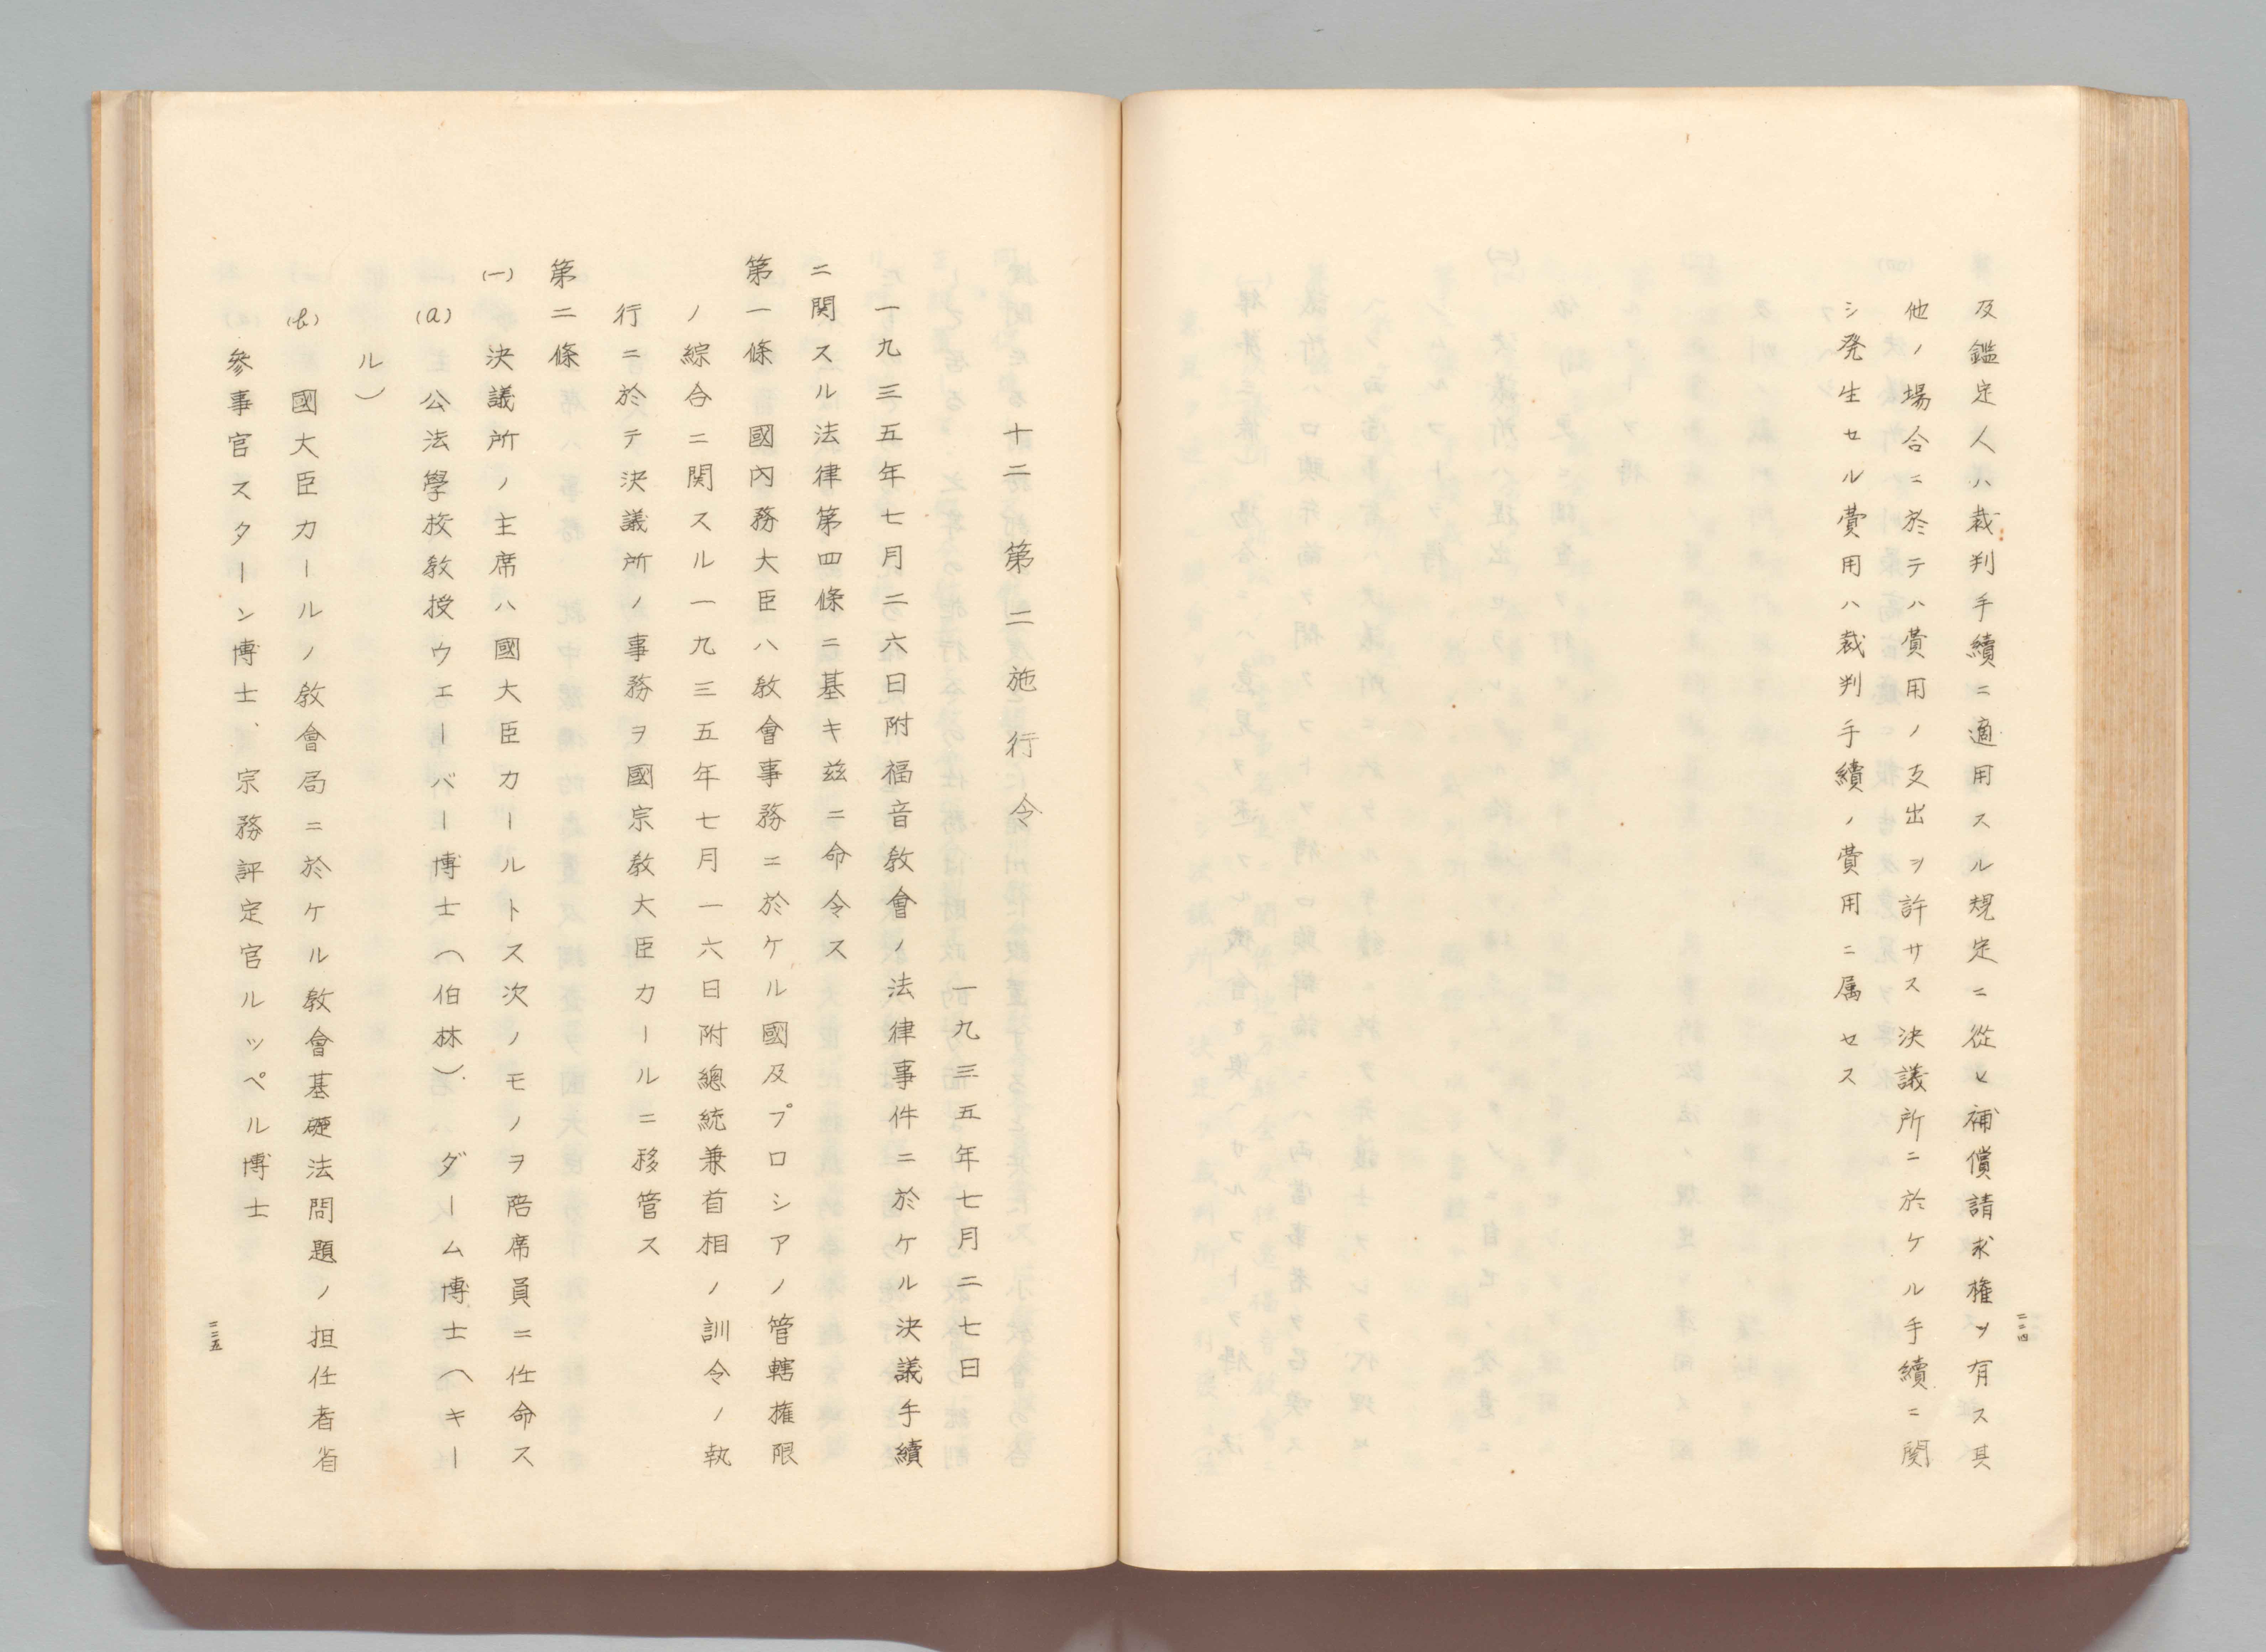 及鑑定人ハ裁判手續ニ適用スル規定ニ從ヒ補償請求権ヲ有ス其
他ノ場合ニ於テハ費用ノ支出ヲ許サス決議所ニ於ケル手續ニ関
シ発生セル費用ハ裁判手續ノ費用ニ属セス
二二四
十二　第二施行令
一九三五年七月二七日
一九三五年七月二六日附福音敎會ノ法律事件ニ於ケル決議手續
ニ関スル法律第四條ニ基キ玆ニ命令ス
第一條　國內務大臣ハ敎會事務ニ於ケル國及プロシアノ管轄権限
ノ綜合ニ関スル一九三五年七月一六日附總統兼首相ノ訓令ノ執
行ニ於テ決議所ノ事務ヲ國宗敎大臣カールニ移管ス
第二條
(一)　決議所ノ主席ハ國大臣カールトス次ノモノヲ陪席員ニ任命ス
(a)　公法學校敎授ウエーバー博士（伯林）．　ダーム博士（キー
ル）
(b)　國大臣カールノ敎會局ニ於ケル敎會基礎法問題ノ担任者省
參事官スターン博士、宗務評定官ルッペル博士
二二五